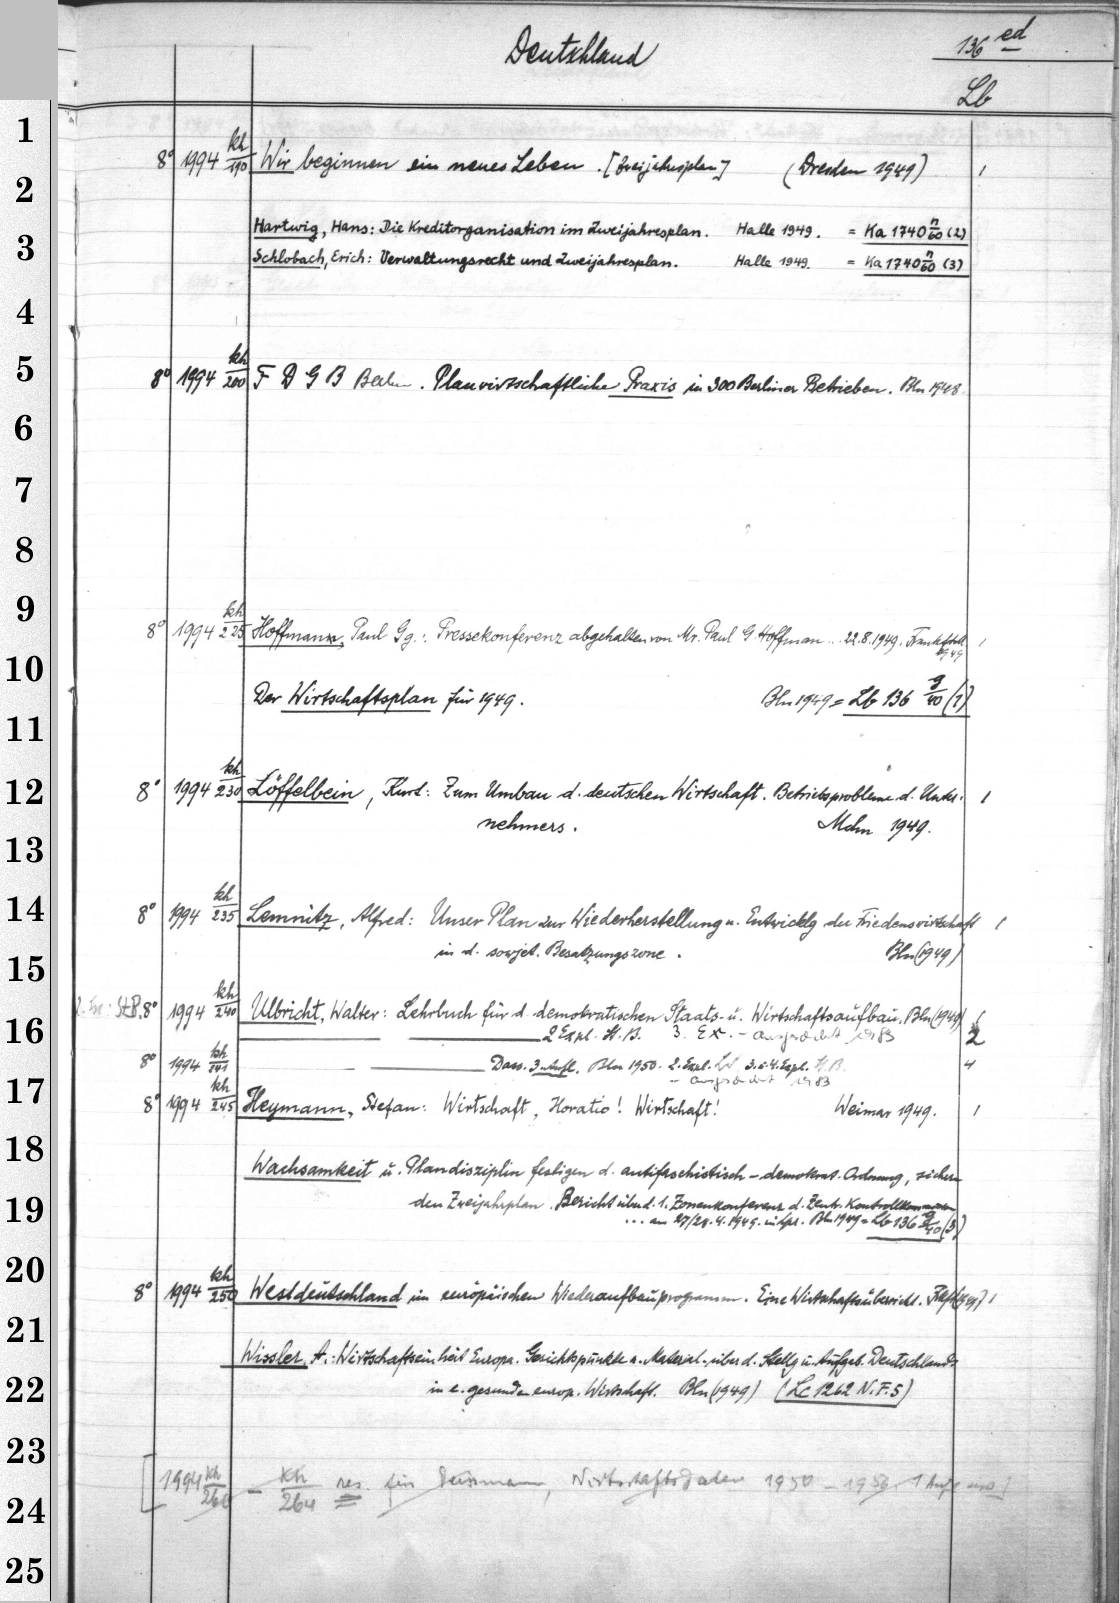 Deutschland 136 ed
Lb
1
8° 1994 kh/190 Wir beginnen ein neues Leben. [Zweijahresplan] (Dresden 1949) 1
2
Hartwig, Hans: Die Kreditorganisation im Zweijahresplan. Halle 1949. = Ka 1740 n/60 (2)
3
Schlobach, Erich: Verwaltungsrecht und Zweijahresplan. Halle 1949. = Ka 1740 n/60 (3)
4
5
8° 1994 kh/200 F D G B Berlin. Planwirtschaftliche Praxis in 300 Berliner Betrieben. Bln 1948.
6
7
8
9
8° 1994 kh/225 Hoffmann, Paul Gg.: Pressekonferenz abgehalten von Mr. Paul G. Hoffman .. 22.8.1949. 1
1949
10
Der Wirtschaftsplan für 1949. Bln 1949 = Lb 136 g/40 (1)
11
12
8° 1994 kh/230 Löffelbein, Kurt: Zum Umbau d. deutschen Wirtschaft. Betriebsprobleme d. Unter- 1
nehmers. Mchn 1949.
13
14
8° 1994 kh/235 Lemnitz, Alfred: Unser Plan zur Wiederherstellung u. Entwicklg der Friedenswirtschaft 1
in d. sowjet. Besatzungszone. Bln (1949)
15
8° 1994 kh/240 Ulbricht, Walter: Lehrbuch für d. demokratischen Staats- u. Wirtschaftsaufbau. Bln (1949)
16
2 Expl. H.B. 3. Ex. - ausgesondert 1983 2
8° 1994 kh/241 Dass. 3. Aufl. Bln 1950. 2. Expl. 3. u. 4. Expl. H.B. 4
- ausgesondert 1983
17
8° 1994 kh/245 Heymann, Stefan: Wirtschaft, Horatio! Wirtschaft! Weimar 1949. 1
18
Wachsamkeit u. Plandisziplin festigen d. antifaschistisch-demokrat. Ordnung, sichern
19
den Zweijahrplan. Bericht über d. 1. Zonenkonferenz d. Zentr. Kontrollkommission
... am 27/28.4.1949. in Lpz. Bln 1949 = Lb 136 g/40 (3)
20
8° 1994 kh/250 Westdeutschland im europäischen Wiederaufbauprogramm. Eine Wirtschaftsübersicht. Frkft (1949) 1
21
Wissler, A.: Wirtschaftseinheit Europa. Gesichtspunkte u. Material. über d. Stellg u. Aufgab. Deutschlands
22
in e. gesunden europ. Wirtschaft. Bln (1949) (Lc 1262 N.F. 5)
23
[1994 kh/260 - kh/264 res. für Wirtschaftsdaten 1950 -
24
25